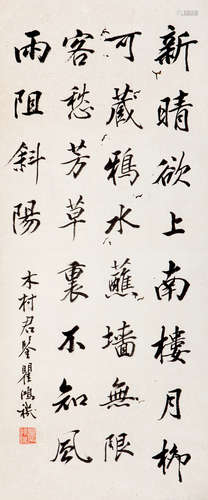 新晴欲上南樓月柳
可藏鴉水蘸墻無限
客愁芳草裏不知風
雨阻斜陽
木村君鉴瞿鴻禨